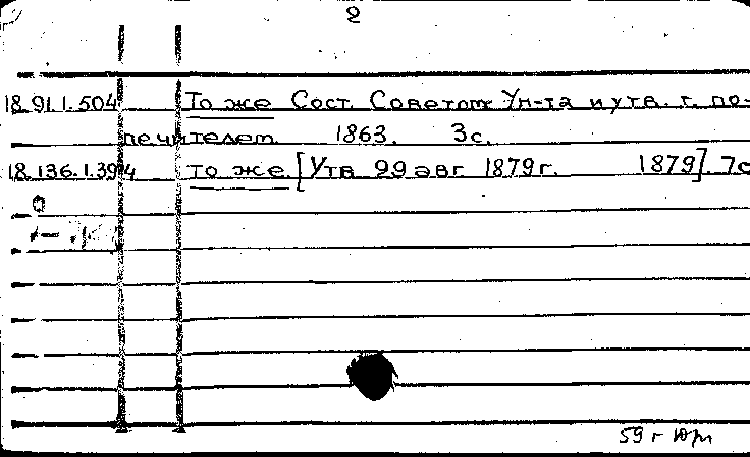 2
18.91.1.504 То же Сост. Советом Ун-та и утв. г. по-
печителем. 1863. 3с.
18.136.1.394 То же. [Утв 29 авг 1879г. 1879]. 7с
59 г